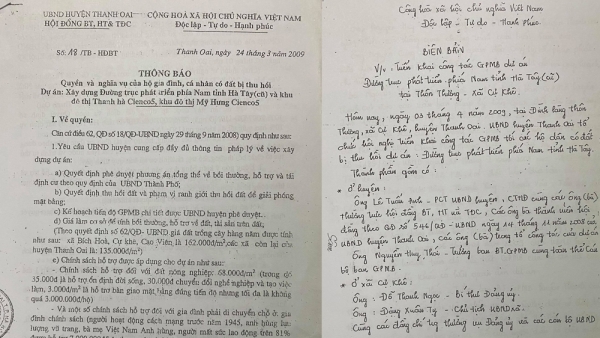 UBND HUYỆN THANH OAI
HỘI ĐỒNG BT, HT& TĐC
CỘNG HOÀ XÃ HỘI CHỦ NGHĨA VIỆT NAM
Độc lập - Tự do - Hạnh phúc
Số: 18 /TB - HĐBT
Thanh Oai, ngày 24 tháng 3 năm 2009
THÔNG BÁO
Quyền và nghĩa vụ của hộ gia đình, cá nhân có đất bị thu hồi
Dự án: Xây dựng Đường trục phát triển phía Nam tỉnh Hà Tây(cũ) và khu
đô thị Thanh hà Cienco5, khu đô thị Mỹ Hưng Cienco5
I. Về quyền:
Căn cứ điều 62, QĐ số18/QĐ-UBND ngày 29 tháng 9 năm 2008) quy định như sau:
1.Yêu cầu UBND huyện cung cấp đầy đủ thông tin pháp lý về việc xây
dựng dự án:
a) Quyết định phê duyệt phương án tổng thể về bồi thường, hỗ trợ và tái
định cư theo quy định của UBND Thành Phố;
b) Quyết định thu hồi đất và phạm vi ranh giới thu hồi đất để giải phóng
mặt bằng;
c) Kế hoạch tiến độ GPMB chi tiết được UBND huyện phê duyệt.
d) Giá làm cơ sở để tính bồi thường, hỗ trợ về đất, tài sản trên đất;
(Theo quyết định số 62/QĐ- UBND giá đất trồng cây hàng năm được tính
như sau: xã Bích Hoà, Cự Khê, Cao Viên là 162.000đ/m²,các xã còn lại của
huyện Thanh Oai là: 135.000đ/m²)
e) Chính sách hỗ trợ được áp dụng cho dự án như sau:
- Chính sách hỗ trợ đối với đất nông nghiệp: 68.000đ/m² (trong đó
35.000đ là hỗ trợ ổn định đời sống, 30.000đ chuyển đổi nghề nghiệp và tạo việc
làm, 3.000đ/m² là hỗ trợ bàn giao mặt bằng đúng tiến độ nhưng tối đa là không
quá 3.000.000đ/hộ)
- Và một số chính sách hỗ trợ đối với gia đình phải di chuyển chỗ ở gia
đình chính sách (người hoạt động cách mạng trước năm 1945, anh hùng lực
lượng vũ trang, bà mẹ Việt Nam Anh hùng, người mất sức lao động trên 81%
Cộng hòa xã hội chủ nghĩa Việt Nam
Độc lập - Tự do - Hạnh phúc
BIÊN BẢN
V/v: Triển khai công tác GPMB dự án
Đường trục phát triển phía Nam tỉnh Hà Tây (cũ)
tại Thôn Thượng - Xã Cự Khê.
Hôm nay, ngày 03 tháng 4 năm 2009, tại Đình làng thôn
Thượng, xã Cự Khê, huyện Thanh Oai. UBND huyện Thanh Oai tổ
chức hội nghị Triển khai công tác GPMB tới các hộ dân có đất
bị thu hồi dự án: Đường trục phát triển phía Nam tỉnh Hà Tây.
Thành phần gồm có:
* Ở huyện:
Ông Lê Tuấn - PCT UBND huyện, CTHĐ cùng các ông (bà)
thường trực hội đồng BT, HT và TĐC, Các ông bà thành viên hội
đồng theo QĐ số 546/QĐ - UBND ngày 14 tháng 11 năm 2008 của
UBND huyện Thanh Oai, các ông (bà) trong tổ công tác của dự án
Ông Nguyễn - Trưởng ban BT.GPMB cùng toàn thể cán
bộ ban GPMB.
* Ở xã Cự Khê:
Ông: Đỗ Thanh Ngọc - Bí thư Đảng ủy.
Ông: Đặng Xuân Tý - Chủ tịch UBND xã.
Cùng các đồng chí thường vụ Đảng ủy và các cán bộ UBND